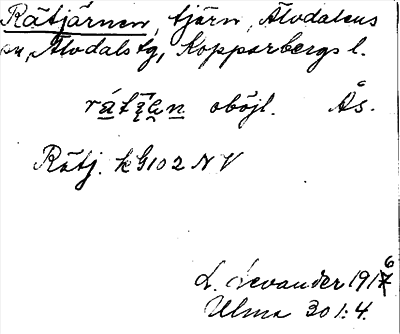 Råtjärnen, tjärn, Älvdalens
sn, Älvdals tg, Kopparbergs l.
rátjẹn oböjl. Ås.
Råtj. kG102 NV
L. Levander 1916
Ulma 301:4.